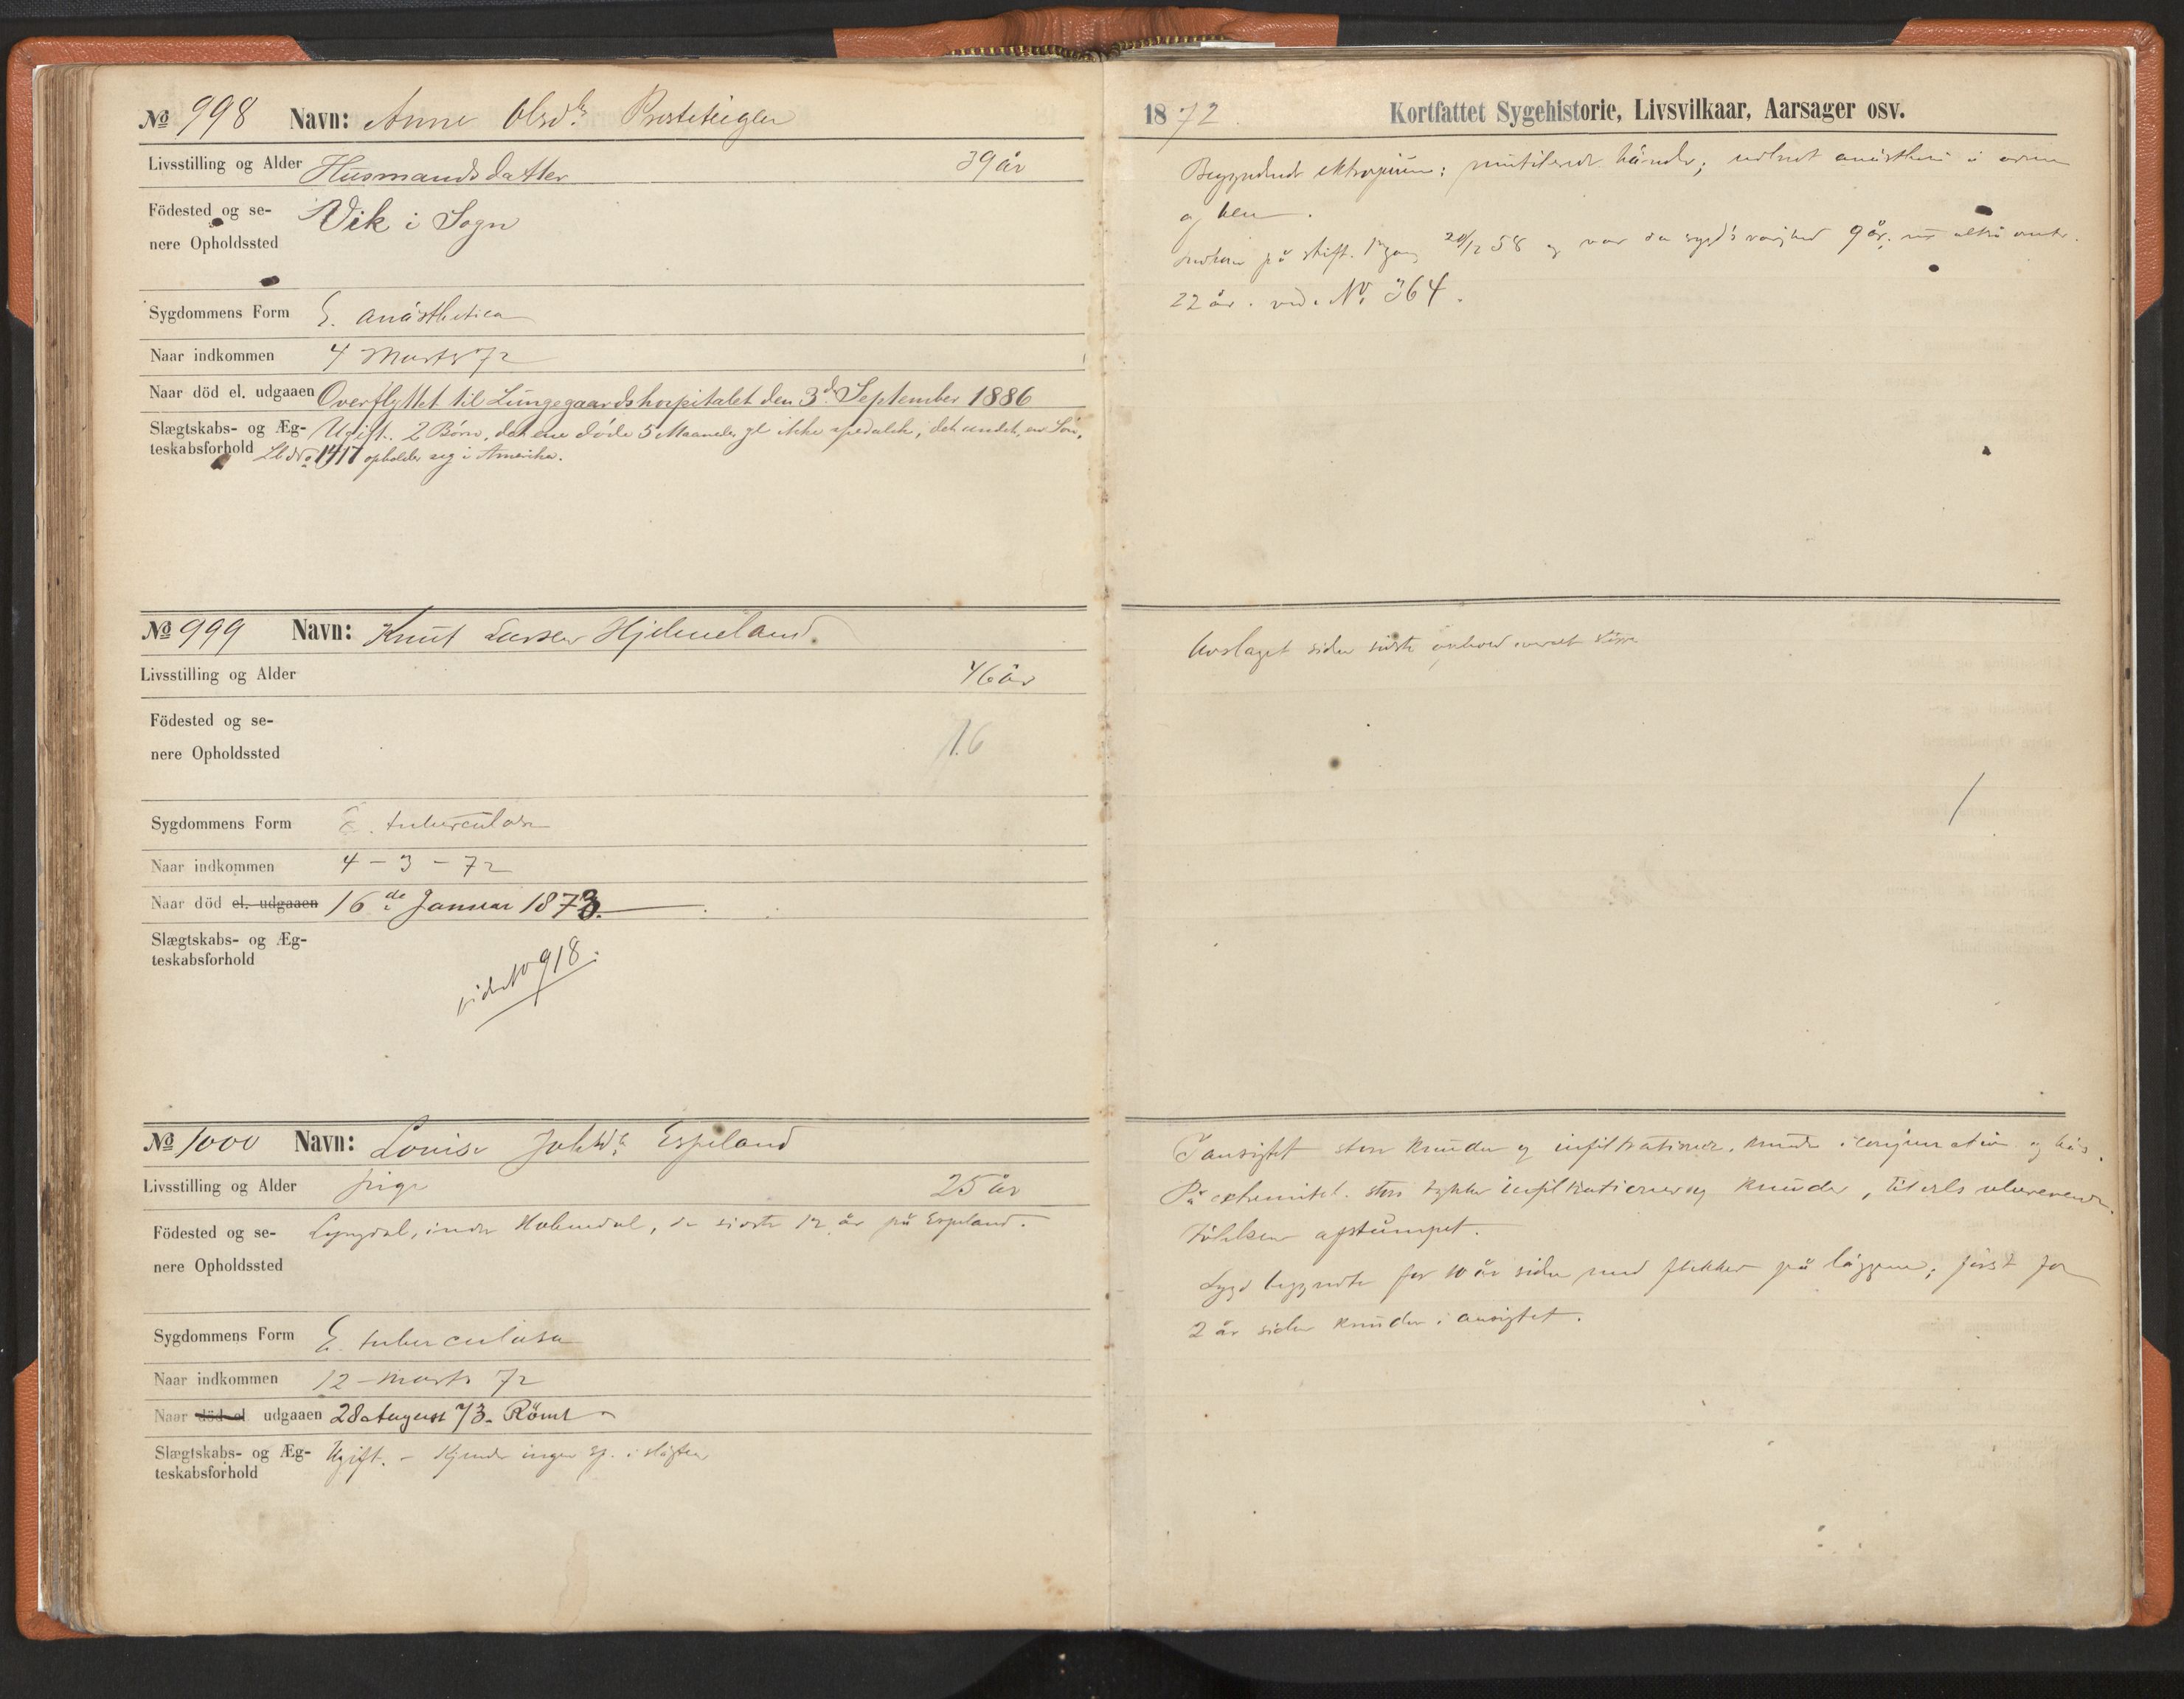 № 998 Navn: Anne Olsdtr Presteteigen
Livsstilling og Alder Husmandsdatter 39 år
Födested og se-
nere Opholdssted Vik i Sogn
Sygdommens Form E. anästhetica
Naar indkommen 4 Marts 72
Naar död el. udgaaen Overflyttet til Lungegaardshospitalet den 3de September 1886
Slægtskabs- og Æg-
teskabsforhold Ugift. 2 Börn, det ene döde 5 Maaneder gl. ikke spedalsk, det andet, en Sön,
Lb. No 1417 opholder sig i Amerika.
№ 999 Navn: Knut Larsen Hjelmeland.
Livsstilling og Alder 46 år
Födested og se-
nere Opholdssted 16
Sygdommens Form E. tuberculosa
Naar indkommen 4 - 3 - 72
Naar död el. udgaaen 16de Januar 1873.
Slægtskabs- og Æg-
teskabsforhold
vide No 918.
№ 1000 Navn: Louise Espeland
Livsstilling og Alder pige 25 år
Födested og se-
nere Opholdssted Lyngdal, de sidste 12 år på Espeland.
Sygdommens Form E. tuberculosa
Naar indkommen 12 - marts 72
Naar död el. udgaaen 28 August 73. Römt
Slægtskabs- og Æg-
teskabsforhold Ugift. - Kjender ingen sp. i slägten
1872. Kortfattet Sygehistorie, Livsvilkaar, Aarsager osv.
Begyndende ektropium; mutilerede händer; udbredt anästhesi i arme
og ben.
på stift. 1ste gang 20/12 58 og var da sygd's varighed 9 år. nu altså omtr.
22 år. vid. No. 364.
Udslaget siden sidste ophold större
I ansigtet store knuder og infiltrationer. knude i conjunctiva og hås.
På extremitet. store tykke infiltrationer og knuder, tildels ulcererende.
Fölelsen afstumpet.
Sygd begyndte for 10 år siden med flekker på läggene; först for
2 år siden knuder i ansigtet.